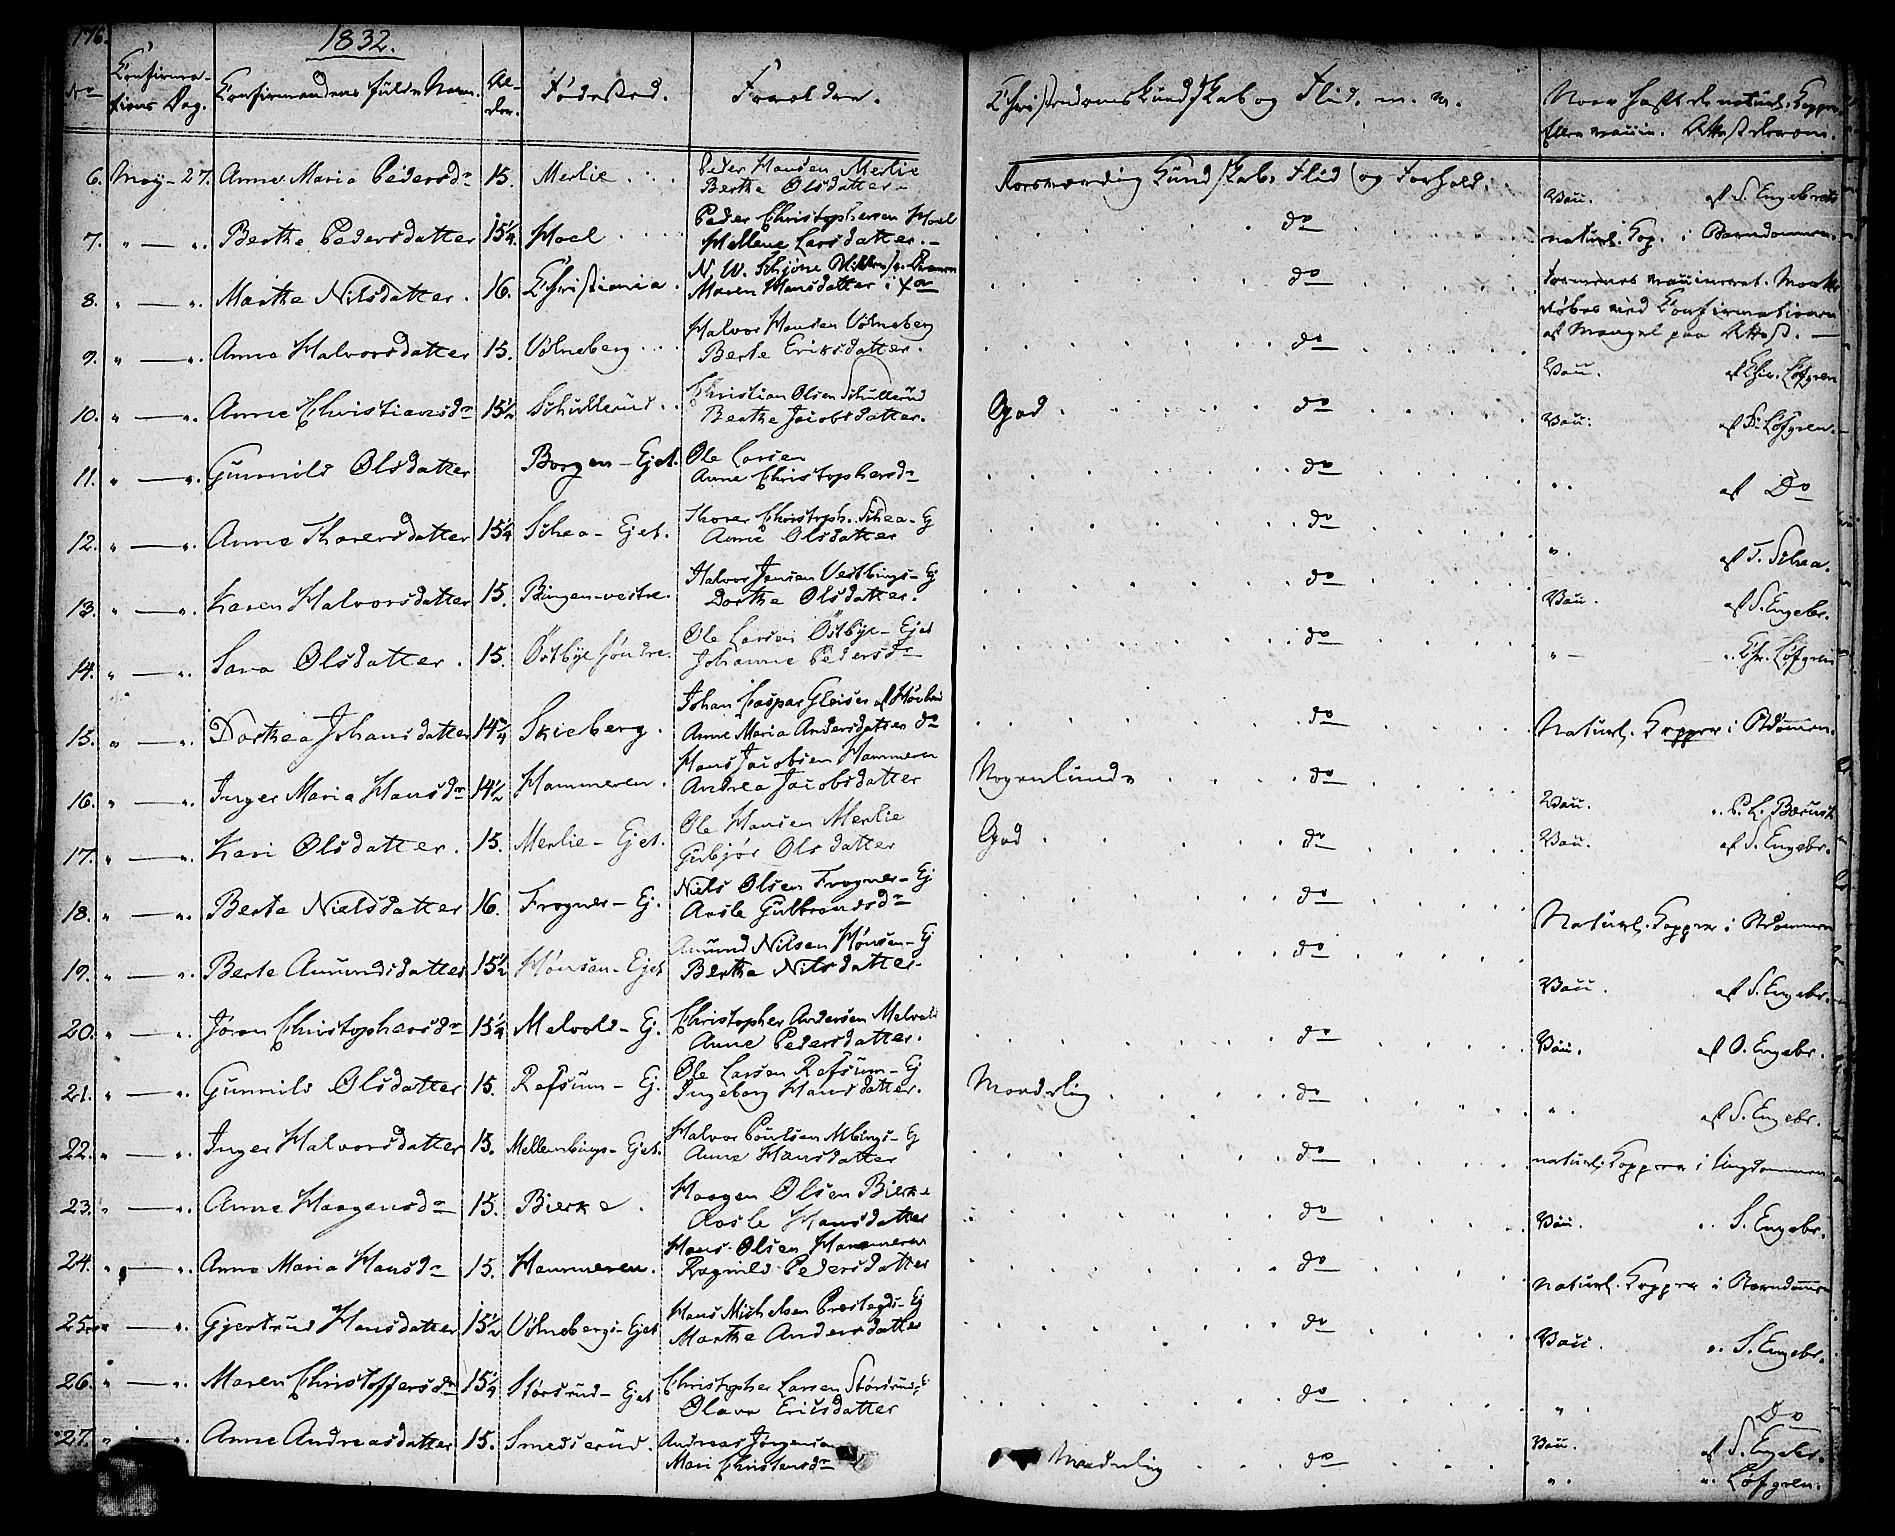 176.
1832.
No Confirmations Dag. Confirmandens fulde Navn. Alder. Fødested. Forældre. Christendoms Kundskab og Flid. m. m.
6. May - 27. Anne Maria Pedersdr 15. Merlie Peder Hansen Merlie
Berthe Olsdatter. Kundskab, Flid og Forhold. Vac. af S. Engebrets
7. " — ". Berthe Pedersdatter 15¼ Hoel Peder Christophersen Hoel
Hellene Larsdatter. do naturl. Kop. i Barndommen.
8. " — ". Marthe Nilsdatter. 16. Christiania. N. W. Schjøne
Maren Hansdatter i do
døbes ved Confirmationen
af Mangel paa Attest. —
9. " — ". Anne Halvorsdatter 15. Volneberg Halvor Hansen Volneberg
Berte Eriksdatter. do Vac. af Chr. Løfgren
10. " — ". Anne Christiansdr 15½ Schullerud Christian Olsen Schullerud
Berthe Jacobsdatter. God do Vac. Løfgren.
11. " — ". Gunnild Olsdatter Borgen - Ejet. Ole Larsen
Anne Christophersdr do af Do
12. " — ". Anne Thorersdatter 15¼ Schea - Ejet. Thorer Christoph. Schea - Ej
Anne Olsdatter do af T. Schea.
13. " — ". Karen Halvorsdatter 15. Bingen - vestre. Halvor Jensen Vestbings - Ej
Dorthe Olsdatter. do Vac. af S. Engebr.
14. " — ". Sara Olsdatter. 15. Østbye søndre. Ole Larsen Østbye - Ejet
Johanne Pedersdr do " — Chr. Løfgren
15. " — ". Dorthea Johansdatter 14¾ Skieberg. Johan Caspar Gleiser af
Anne Maria Andersdatter do do Naturl. Kopper i
16. " — ". Inger Maria Hansdr 14½ Hammeren. Hans Jacobsen Hammeren
Andrea Jacobsdatter Nogenlunde do Vac.
17. " — ". Kari Olsdatter. 15. Merlie - Ejet. Ole Hansen Merlie
Gubjør Olsdatter God do Vac. af S. Engebr.
18. " — ". Berte Nielsdatter 16. Frogner - Ej. Niels Olsen Frogner - Ej
Aasle Gulbrandsdr do Naturl. Kopper i
19. " — ". Berte Amundsdatter 15½ Hønsen - Ejet Amund Nilsen Hønsen - Ej
Berthe Nilsdatter. do Vac. af S. Engebr.
20. " — ". Joran Christophersdr 15¼ Melvold - Ej. Christopher Andersen Melvold
Anne Pedersdatter. do Vac. af O. Engebr.
21. " — ". Gunnild Olsdatter 15. Refsum - Ej. Ole Larsen Refsum - Ej
Ingeborg Hansdatter. Maadelig do " af S. Engebr.
22. " — ". Inger Halvorsdatter 15. Mellembings - Ejet. Halvor Poulsen Mbings - Ej
Anne Hansdatter do naturl. Kopper i Ungdommen
23. " — ". Anne Haagensdr 15. Bierke. Haagen Olsen Bierke
Aasle Hansdatter do Vac. S. Engebr.
24. " — ". Anne Maria Hansdr 15. Hammeren. Hans Olsen Hammeren
Ragnild Pedersdatter do naturl. Kopper i Barndommen
25. " — ". Gjertrud Hansdatter 15½ Volnebergs - Ejet Hans Michelsen Prestegds - Ej
Marthe Andersdatter do Vac. S. Engebr.
26. " — ". Maren Christoffersdr 15¼ Størsrud - Ejet Christopher Larsen Størsrud
Olava Ericsdatter do " Do
27. " — ". Anne Andreasdatter 15. Smedserud. Andreas Jørgensen
Mari Christensdr Maadelig do Vac. af S. Engebr.
" Løfgren.